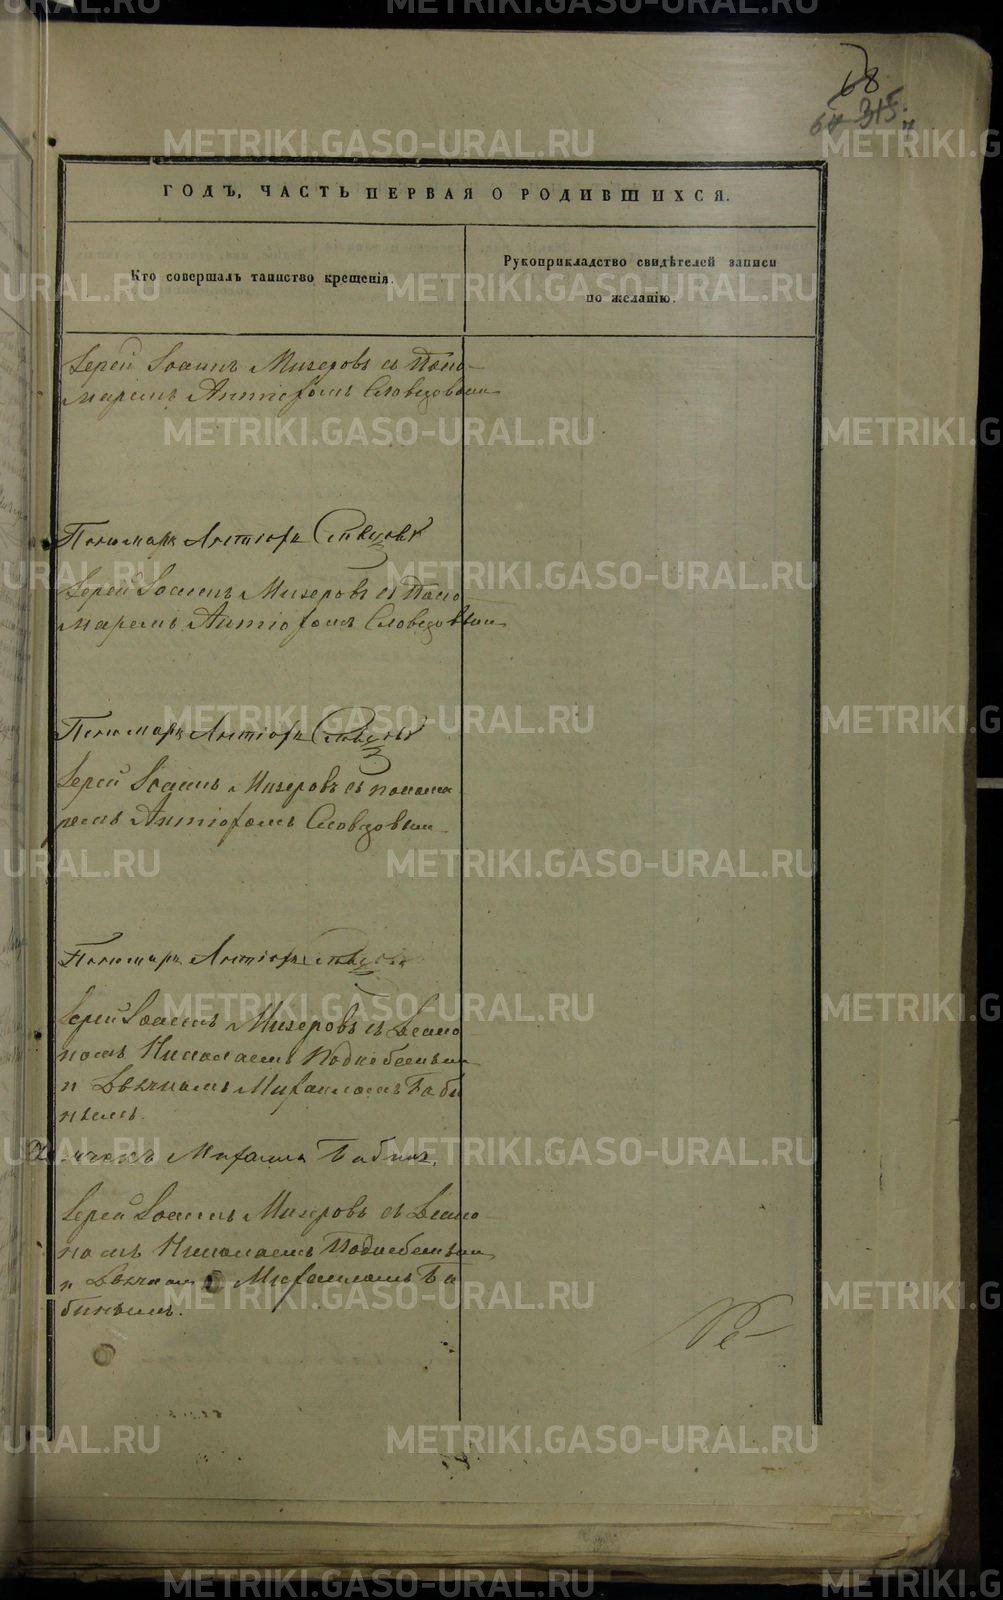 68
315
ГОДЪ, ЧАСТЬ ПЕРВАЯ О РОДИВШИХСЯ.
Кто совершалъ таинство крещенія.
Рукоприкладство свидѣтелей записи
по желанію.
Іерей Іоаннъ Мизеровъ съ Поно-
маремъ Антіохомъ Словцовымъ
Пономарь Антіохъ Словцовъ
Іерей Іоаннъ Мизеровъ съ Поно
маремъ Антіохомъ Словцовымъ
Пономарь Антіохъ Словцовъ
Іерей Іоаннъ Мизеровъ съ понома
ремъ Антіохомъ Словцовымъ
Пономарь Антіохъ Словцовъ
Іерей Іоаннъ Мизеровъ съ Діако-
номъ Николаемъ Поднебеснымъ
и Дьячкомъ Михаиломъ Баби
нымъ.
Дьячекъ Михаилъ Бабинъ.
Іерей Іоаннъ Мизеровъ съ Діако-
номъ Николаемъ Поднебеснымъ
и Дьячкомъ Михаиломъ Ба
бинымъ.
METRIKI.GASO-URAL.RU